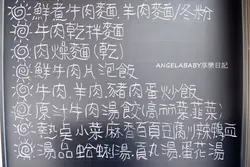 鮮煮牛肉麵.羊肉麵/冬粉
牛肉乾拌麵
ANGELABABY享樂日記
肉燥麵(乾)
鮮牛肉片泡飯
牛肉.羊肉.豬肉蛋炒飯
原汁牛肉湯飯(高麗菜韮菜)
熱炒小菜.麻香百頁豆腐炒辣鴨血
湯品蛤蜊湯.貢丸湯.蛋花湯